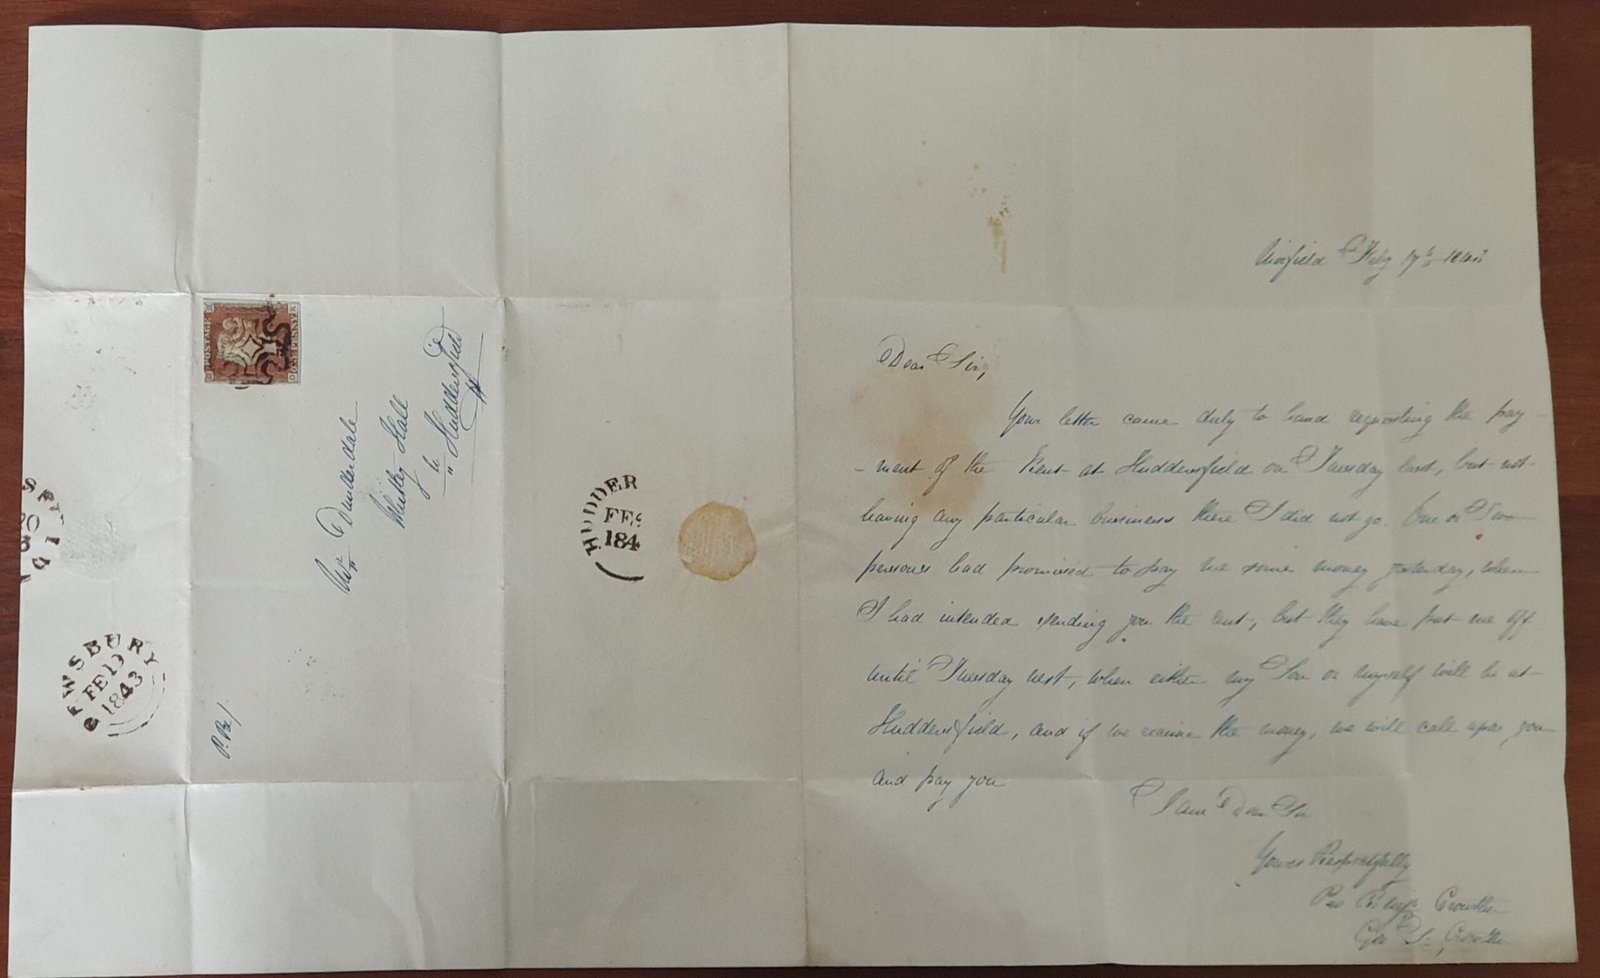 POSTAGE
ONE PENNY
Mr Dunderdale
Whitley Hall
nr
Huddersfield
HUDDER
FE
184
EWSBURY
FE 19
1843
Mirfield Feby 17th 1843
Dear Sir,
Your letter came duly to hand requesting the pay-
-ment of the Rent at Huddersfield on Tuesday last, but not
having any particular bussiness there I did not go. One or Two
persons had promised to pay me some money yesterday, when
I had intended sending you the rent, but they have put me off
until Tuesday next, when either my Son or myself will be at
Huddersfield, and if we receive the money, we will call upon you
and pay you
I am Dear Sir
Yours Respectfully
Crowther
Crowther